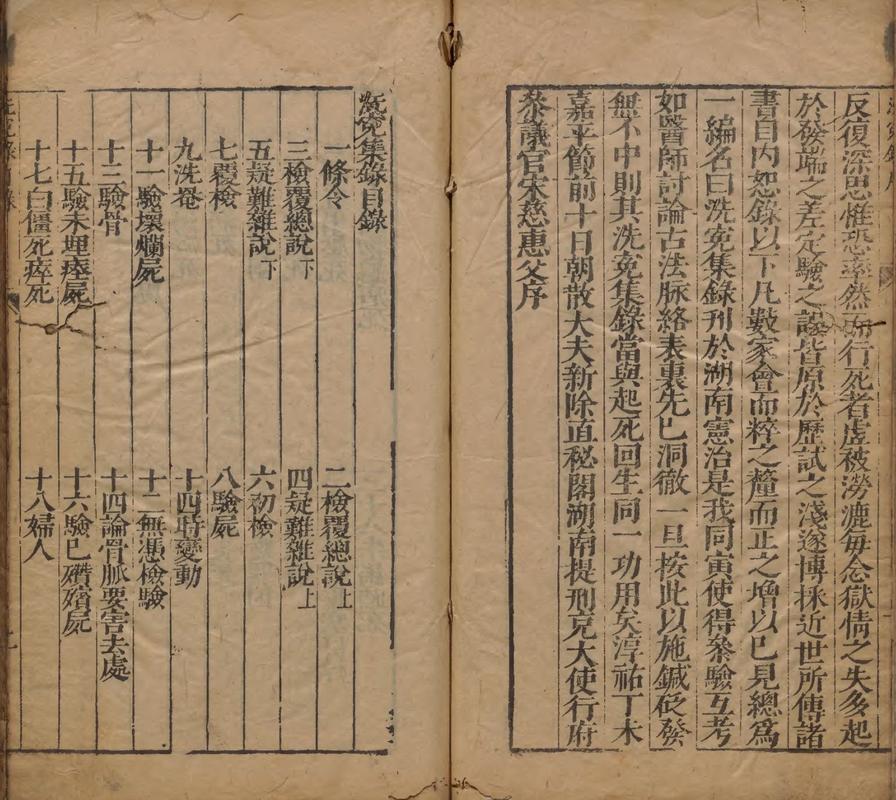 反復深思惟恐率然而行死者虛被澇漉每念獄情之失多起
於發端之差定驗之誤皆原於歷試之淺遂博採近世所傳諸
書自内恕錄以下凡數家會而粹之釐而正之增以已見總爲
一編名曰洗冤集錄刋於湖南憲治是我同寅使得叅驗互考
如醫師討論古法脉絡表裏先已洞徹一旦按此以施鍼砭發
無不中則其洗冤集錄當與起死回生同一功用矣淳祐丁未
嘉平節前十日朝散大夫新除直秘閣湖南提刑充大使行府
叅議官宋慈惠父序
洗冤集錄目錄
一條令
二檢覆總說上
三檢覆總說下
四疑難雜說上
五疑難雜說下
六初檢
七覆檢
八驗屍
九洗罨
十四時變動
十一驗壞爛屍
十二無憑檢驗
十三驗骨
十四論骨脈要害去處
十五驗未埋瘞屍
十六驗已殯殯屍
十七白僵死瘁死
十八婦人